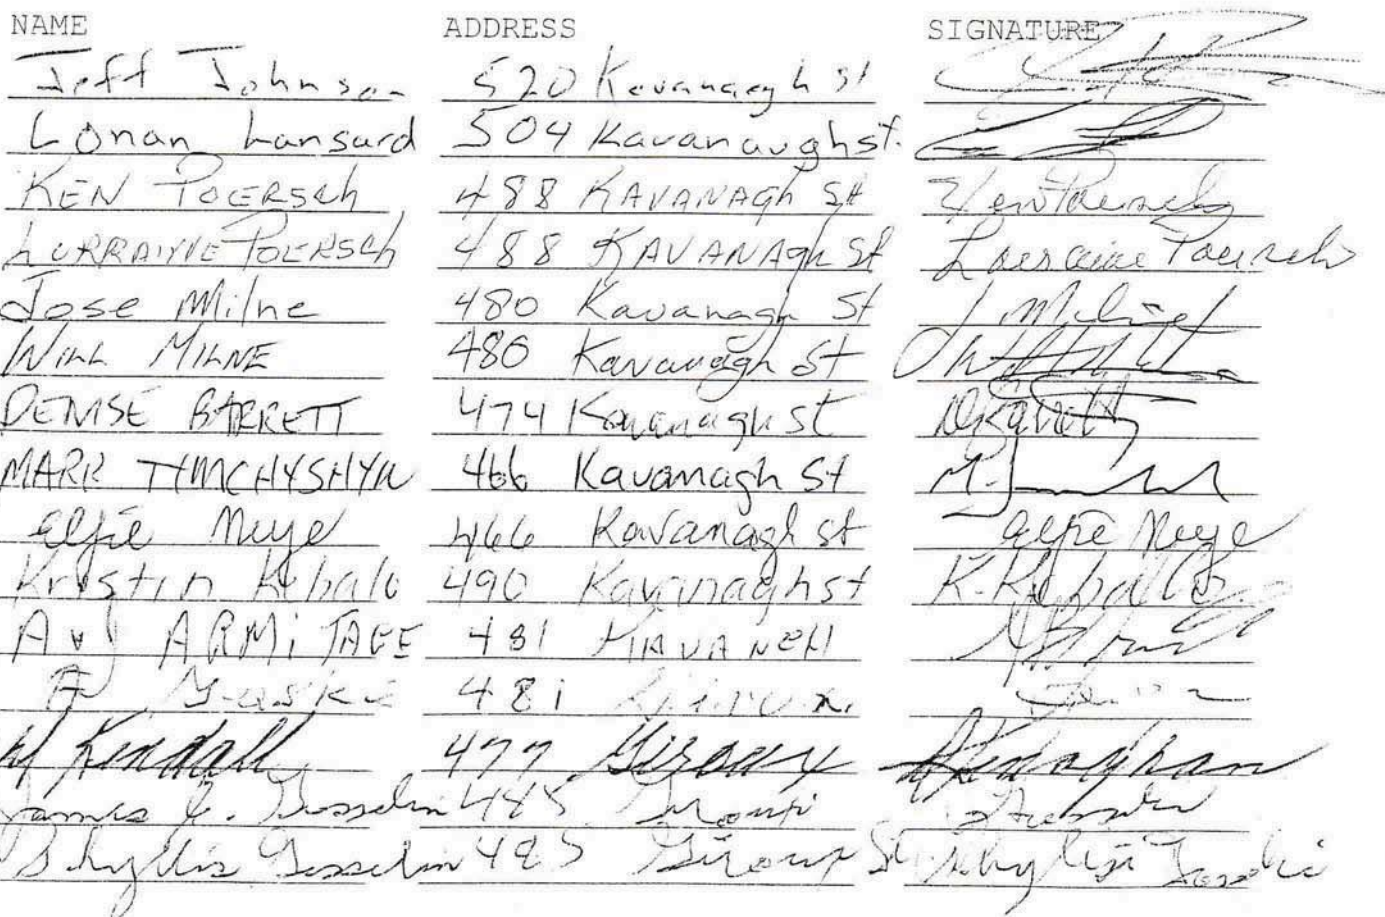 NAME ADDRESS SIGNATURE
Jeff Johnson 520 Kavanagh st
Lonan Lansard 504 Kavanaughst.
KEN POERSCH 488 KAVANAGH St Ken Poersch
LORRAINE POERSCH 488 KAVANAGH St Lorraine Poersch
Jose Milne 480 Kavanagh St J Milne
WILL MILNE 480 Kavanagh St
DENISE BARRETT 474 Kavanagh St DBarrett
MARK TYMCHYSHYN 466 Kavanagh St M.
Elfie Muye 466 Kavanagh st Elfie Muye
Kristin Kebalo 490 Kavanagh st K. Kebalo
A v J ARMITAGE 481 KAVANEH
481
Kendall 477 Giroux
James Gosselin 485 Giroux
Phyllis Gosselin 485 Giroux St Phyllis Gosselin